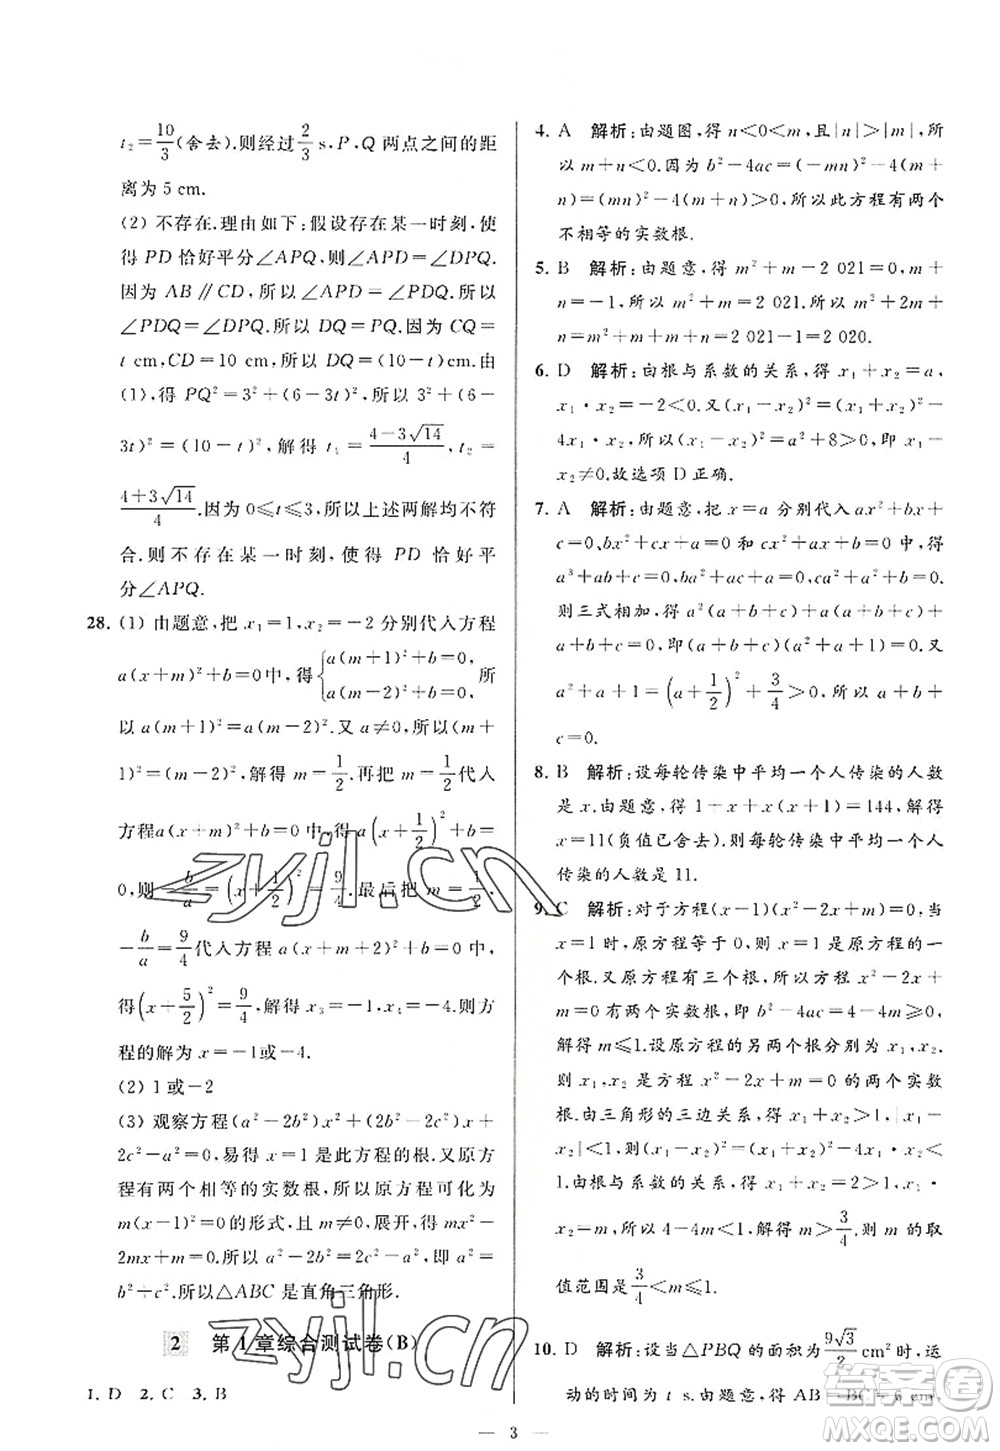 t₂=10/3(舍去).则经过2/3 s,P,Q 两点之间的距
离为 5 cm.
(2) 不存在.理由如下:假设存在某一时刻,使
得 PD 恰好平分∠APQ,则∠APD=∠DPQ.
因为 AB∥CD,所以∠APD=∠PDQ.所以
∠PDQ=∠DPQ.所以 DQ=PQ.因为 CQ=
t cm,CD=10 cm,所以 DQ=(10-t)cm.由
(1),得 PQ²=3²+(6-3t)².所以 3²+(6-
3t)²=(10-t)²,解得 t₁=(4-3√14)/4,t₂=
(4+3√14)/4.因为 0≤t≤3,所以上述两解均不符
合.则不存在某一时刻,使得 PD 恰好平
分∠APQ.
28. (1) 由题意,把 x₁=1,x₂=-2 分别代入方程
a(x+m)²+b=0中,得{a(m+1)²+b=0, a(m-2)²+b=0.所
以 a(m+1)²=a(m-2)².又 a≠0,所以(m+
1)²=(m-2)²,解得 m=1/2.再把 m=1/2代入
方程a(x+m)²+b=0中,得 a(x+1/2)²+b=
0,则-b/a=(x+1/2)²=9/4.最后把 m=1/2,
-b/a=9/4代入方程 a(x+m+2)²+b=0 中,
得(x+5/2)²=9/4,解得 x₃=-1,x₄=-4.则方
程的解为 x=-1或-4.
(2) 1或-2
(3) 观察方程(a²-2b²)x²+(2b²-2c²)x+
2c²-a²=0,易得 x=1是方程的根.因为方
程有两个相等的实数根,所以原方程可化为
m(x-1)²=0 的形式,且 m≠0,展开,得 mx²-
2mx+m=0.所以 a²-2b²=2c²-a².所以 a²=
b²+c².所以△ABC 是直角三角形.
2 第1章综合测试卷(B)
1. D 2. C 3. B
4. A 解析:由题图,得 n<0<m,且|n|>|m|,所
以 m+n<0.因为 b²-4ac=(-mn)²-4(m+
n)=(mn)²-4(m+n)>0,所以此方程有两个
不相等的实数根.
5. B 解析:由题意,得 m²+m-2 021=0,m+
n=-1,所以 m²+m=2 021.所以 m²+2m+
n=m²+m+m+n=2 021-1=2 020.
6. D 解析:由根与系数的关系,得 x₁+x₂=a,
x₁·x₂=-2<0.又(x₁-x₂)²=(x₁+x₂)²-
4x₁·x₂,所以(x₁-x₂)²=a²+8>0,所以 x₁-
x₂≠0.故选项 D 正确.
7. A 解析:由题意,把 x=a 分别代入 ax²+bx+
c=0、bx²+cx+a=0 和 cx²+ax+b=0 中,得
a³+ab+c=0,ba²+ac+a=0,ca²+a²+b=0.
则三式相加,得 a²(a+b+c)+a(a+b+c)+
(a+b+c)=0,即(a+b+c)(a²+a+1)=0.因为
a²+a+1=(a+1/2)²+3/4>0,所以 a+b+
c=0.
8. B 解析:设每轮传染中平均一个人传染的人数
是 x.由题意,得 1+x+x(x+1)=144,解得
x=11(负值已舍去).则每轮传染中平均一个人
传染的人数是 11.
9. C 解析:对于方程(x-1)(x²-2x+m)=0,当
x=1时,原方程等于 0,则 x=1是原方程的一个
根.又原方程有三个根,所以方程 x²-2x+
m=0有两个实数根,即 b²-4ac=4-4m≥0,
解得 m≤1.设原方程的另两个根分别为 x₁,x₂.
则 x₁,x₂ 是一元二次方程 x²-2x+m=0的两个实数
根.由三角形的三边关系,得 x₁+x₂>1,|x₁-
x₂|<1,所以(x₁-x₂)²<1,即(x₁+x₂)²-4x₁x₂<
1.由根与系数的关系,得 x₁+x₂=2,x₁·
x₂=m,所以 4-4m<1,解得 m>3/4.则 m 的取
值范围是3/4<m≤1.
10. D 解析:设当△PBQ 的面积为9√3/2 cm²时,运
动的时间为 t s.由题意,得 AB=BC=6 cm,
— 3 —
zyjl.cn
zyjl.cn
答案圈
MXQE.COM